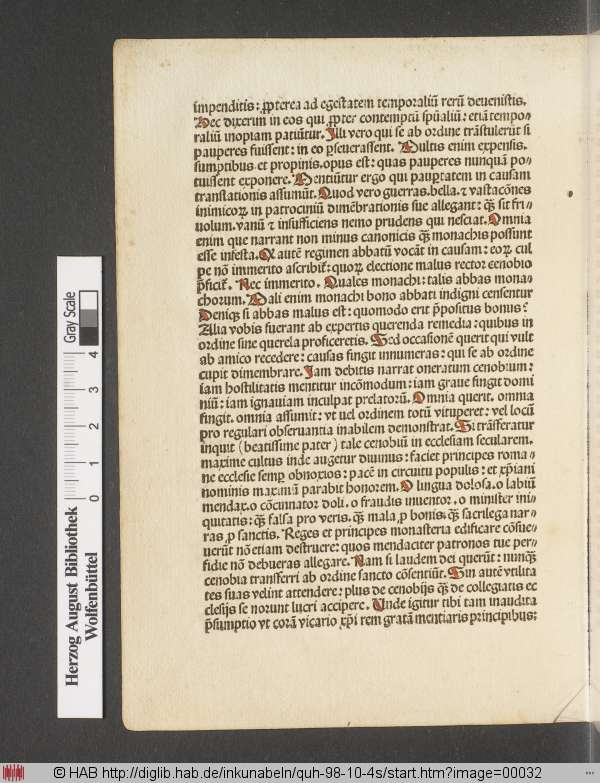 impenditis: ꝓpterea ad egestatem temporaliū rerū deuenistis.
Hec dixerim in eos qui ꝓpter contemptū spūaliū: etiā tempo⸗
raliū inopiam patiūtur. Illi vero qui se ab ordine trāstulerūt si
pauperes fuissent: in eo ꝑseuerassent. Multis enim expensis.
sumptibus et propinis. opus est: quas pauperes nunquā po⸗
tuissent exponere. Mentiūtur ergo qui pauꝑtatem in causam
translationis assumūt. Quod vero guerras. bella. ⁊ vastacōnes
inimicoꝝ in patrociniū dimēbrationis sue allegant: qͣꝫ sit fri⸗
uolum. vanū ⁊ insufficiens nemo prudens qui nesciat. Omnia
enim que narrant non minus canonicis qͣꝫ monachis possunt
esse infesta. Et autē regimen abbatū vocāt in causam: eoꝝ cul
pe nō immerito ascribit͛: quoꝝ electione malus rector cenobio
p̄ficit͛. Nec immerito. Quales monachi: talis abbas mona⸗
chorum. Mali enim monachi bono abbati indigni censentur
Deniqꝫ si abbas malus est: quomodo erit p̄positus bonus?
Alia vobis fuerant ab expertis querenda remedia: quibus in
ordine sine querela proficeretis. Sed occasionē querit qui vult
ab amico recedere: causas fingit innumeras: qui se ab ordine
cupit dimembrare. Iam debitis narrat oneratum cenobium:
iam hostilitatis mentitur incōmodum: iam graue fingit domi
niū: iam ignauiam inculpat prelatorū. Omnia querit. omnia
fingit. omnia assumit: vt vel ordinem totū vituperet: vel locū
pro regulari obseruantia inabilem demonstrat. Si trāsferatur
inquit (beatissime pater) tale cenobiū in ecclesiam secularem.
maxime cultus inde augetur diuinus: faciet principes roma⸗
ne ecclesie semꝑ obnoxios: pacē in circuitu populis: et xp̄iani
nominis maximā parabit honorem. O lingua dolosa. o labiū
mendax. o cōcinnator doli. o fraudis inuentor. o minister ini⸗
quitatis: qͣꝫ falsa pro veris. qͣꝫ mala ꝓ bonis. qͣꝫ sacrilega nar⸗
ras ꝓ sanctis. Reges et principes monasteria edificare cōsue⸗
uerūt nō etiam destruere: quos mendaciter patronos tue per⸗
fidie nō debueras allegare. Nam si laudem dei querūt: nunqͣꝫ
cenobia transferri ab ordine sancto cōsentiūt. Sin autē vtilita
tes suas velint attendere: plus de cenobijs qͣꝫ de collegiatis ec
clesijs se norunt lucri accipere. Unde igitur tibi tam inaudita
p̄sumptio vt corā vicario xp̄i rem gratā mentiaris principibus:
Herzog August Bibliothek
Wolfenbüttel
Gray Scale
0 1 2 3 4
© HAB http://diglib.hab.de/inkunabeln/quh-98-10-4s/start.htm?image=00032